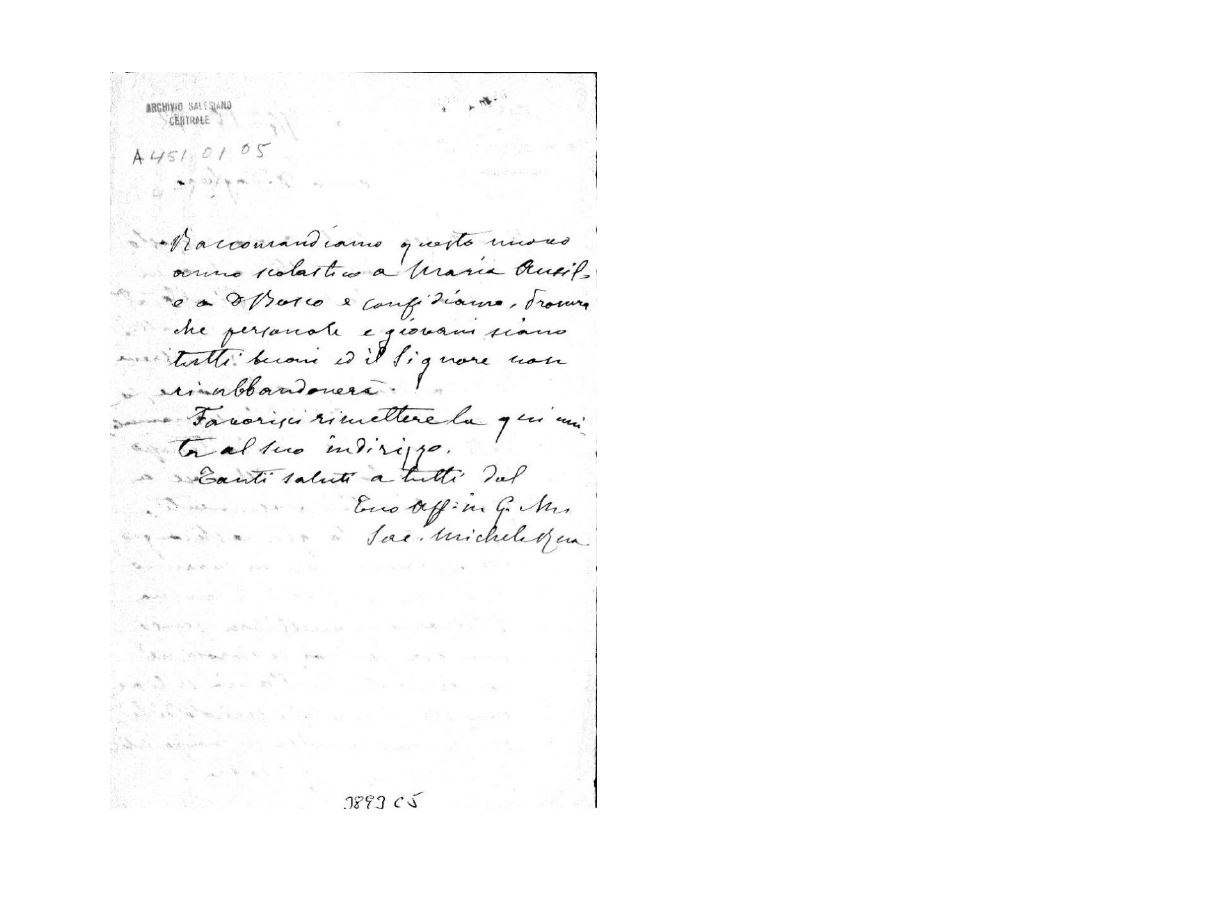 ARCHIVIO SALESIANO
CENTRALE
A 451 01 05
Raccomandiamo questo nuovo
anno scolastico a Maria Ausil.
e a D Bosco e confidiamo. Procura
che personale e giovani siano
tutti buoni ed il Signore non
ci abbandonerà.
Favorisci rimettere la qui uni-
ta al suo indirizzo.
Tanti saluti a tutti dal
Tuo Aff. in G. M.
Sac. Michele Rua
3893 C5